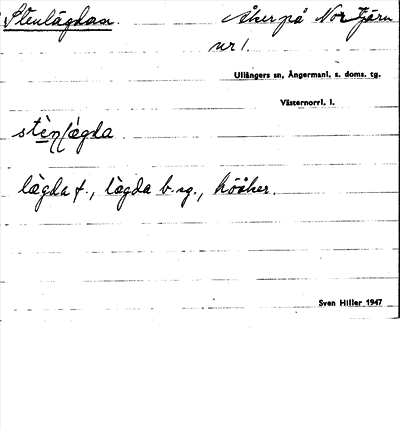 Stenlägdan. Åker på Nor Tjärn
nr 1.
Ullångers sn, Ångermanl. s. doms. tg.
Västernorrl. l.
stèn/lägda
lägda f., lägda b. sg., hööker.
Sven Hiller 1947